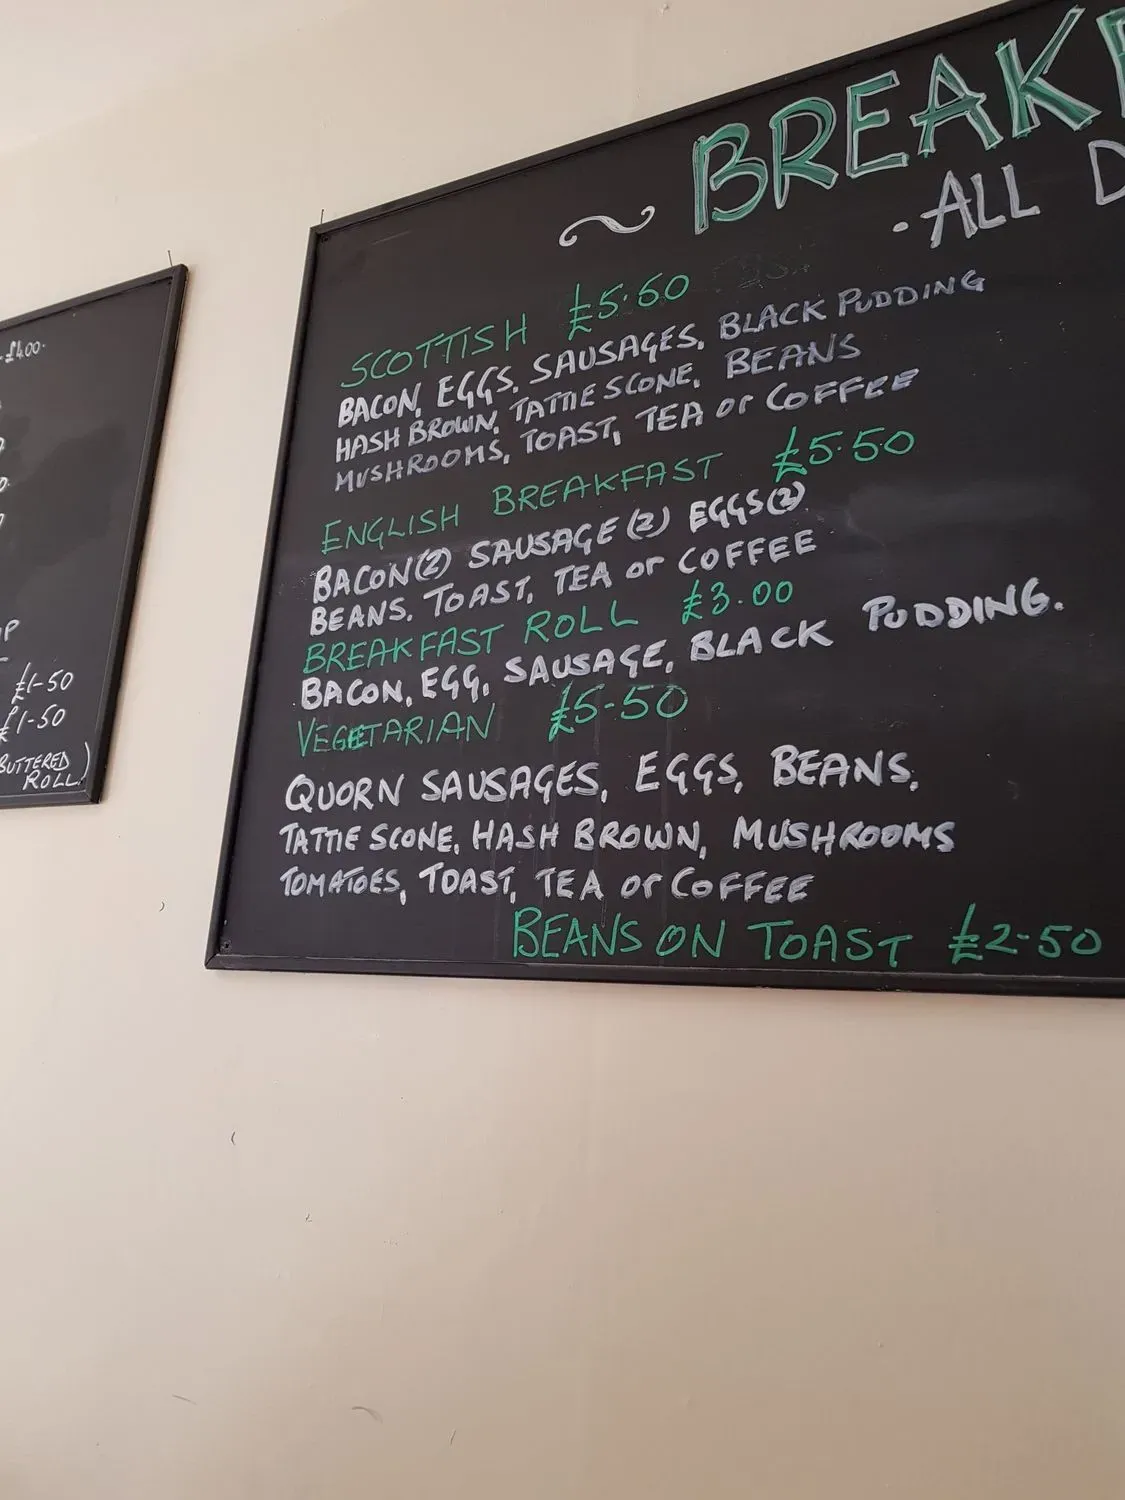 BREAK
·ALL D
SCOTTISH £5·50
BACON, EGGS, SAUSAGES, BLACK PUDDING
HASH BROWN, TATTIE SCONE, BEANS
MUSHROOMS, TOAST, TEA or COFFEE
ENGLISH BREAKFAST £5·50
BACON(2) SAUSAGE (2) EGGS(2)
BEANS, TOAST, TEA or COFFEE
BREAKFAST ROLL £3.00
BACON, EGG, SAUSAGE, BLACK PUDDING.
VEGETARIAN £5-50
QUORN SAUSAGES, EGGS, BEANS,
TATTIE SCONE, HASH BROWN, MUSHROOMS
TOMATOES, TOAST, TEA or COFFEE
BEANS ON TOAST £2-50
£1-50
£1-50
BUTTERED
ROLL)